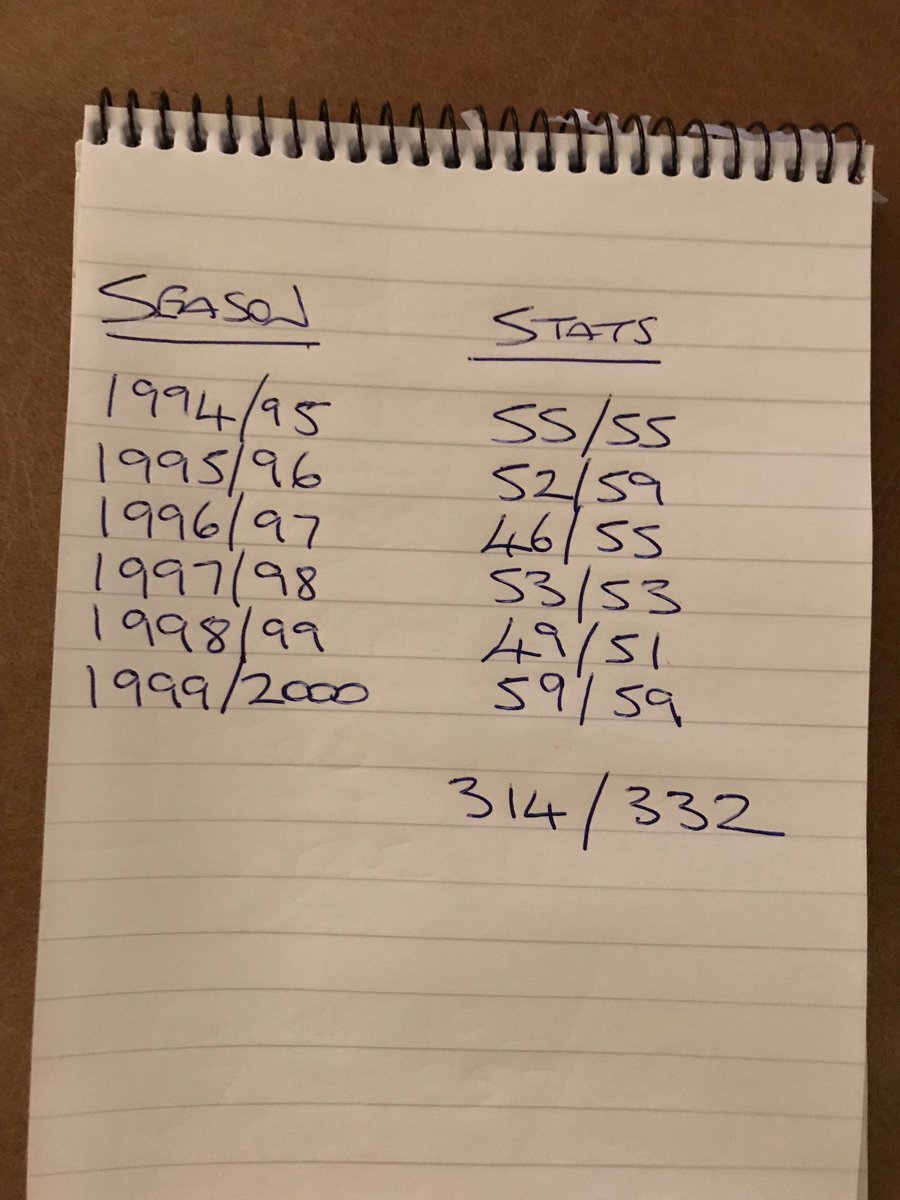 SEASON STATS
1994/95 55/55
1995/96 52/59
1996/97 46/55
1997/98 53/53
1998/99 49/51
1999/2000 59/59
314/332